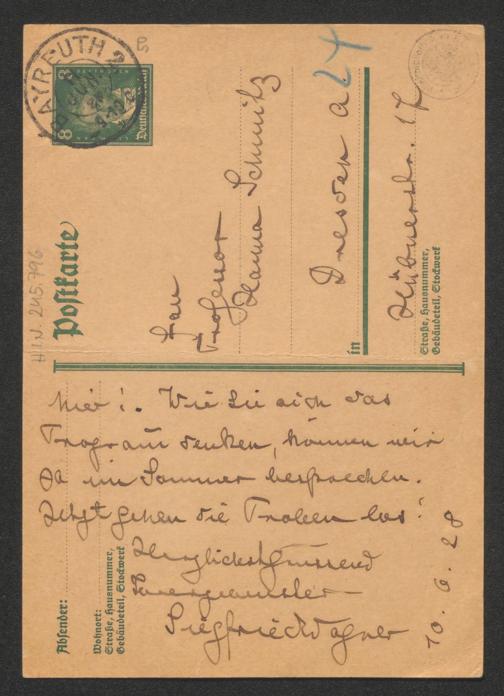 BAYREUTH 2
8
8
Deutsches Reich
24
H.I.N. 245.796
Postkarte
Frau
Professor
Hanna Schmitz
in
Dresden A
Hübnerstr. 17
Straße, Hausnummer,
Gebäudeteil, Stockwerk
hier! Wie Sie sich das
Programm denken, können wir
ja im Sommer besprechen.
Jetzt gehen die Proben los!
Herzlichst grüssend
Siegfried Wagner
10. 6. 28
Absender:
Wohnort:
Straße, Hausnummer,
Gebäudeteil, Stockwerk